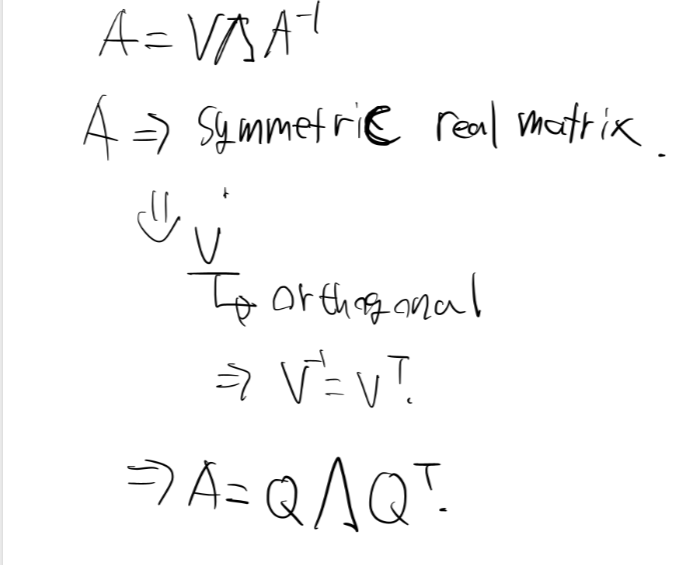 A = VΛA⁻¹
A ⇒ symmetric real matrix.
⇓ V
↳ orthogonal
⇒ V⁻¹ = Vᵀ.
⇒ A = QΛQᵀ.